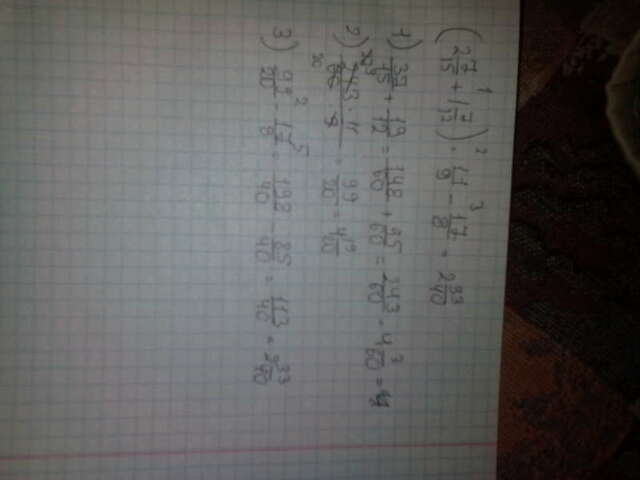 (2 7/15 + 1 7/12) · 11/9 - 17/8 = 2 33/40
1) 37/15 + 19/12 = 148/60 + 95/60 = 243/60 = 4 3/60 =
2) 243 · 11 / 60 · 9 = 99/20 = 4 19/20
3) 99/20 - 17/8 = 198/40 - 85/40 = 113/40 = 2 33/40